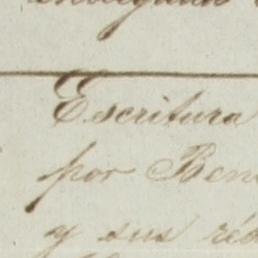 Escritura
por Ben
y sus réd